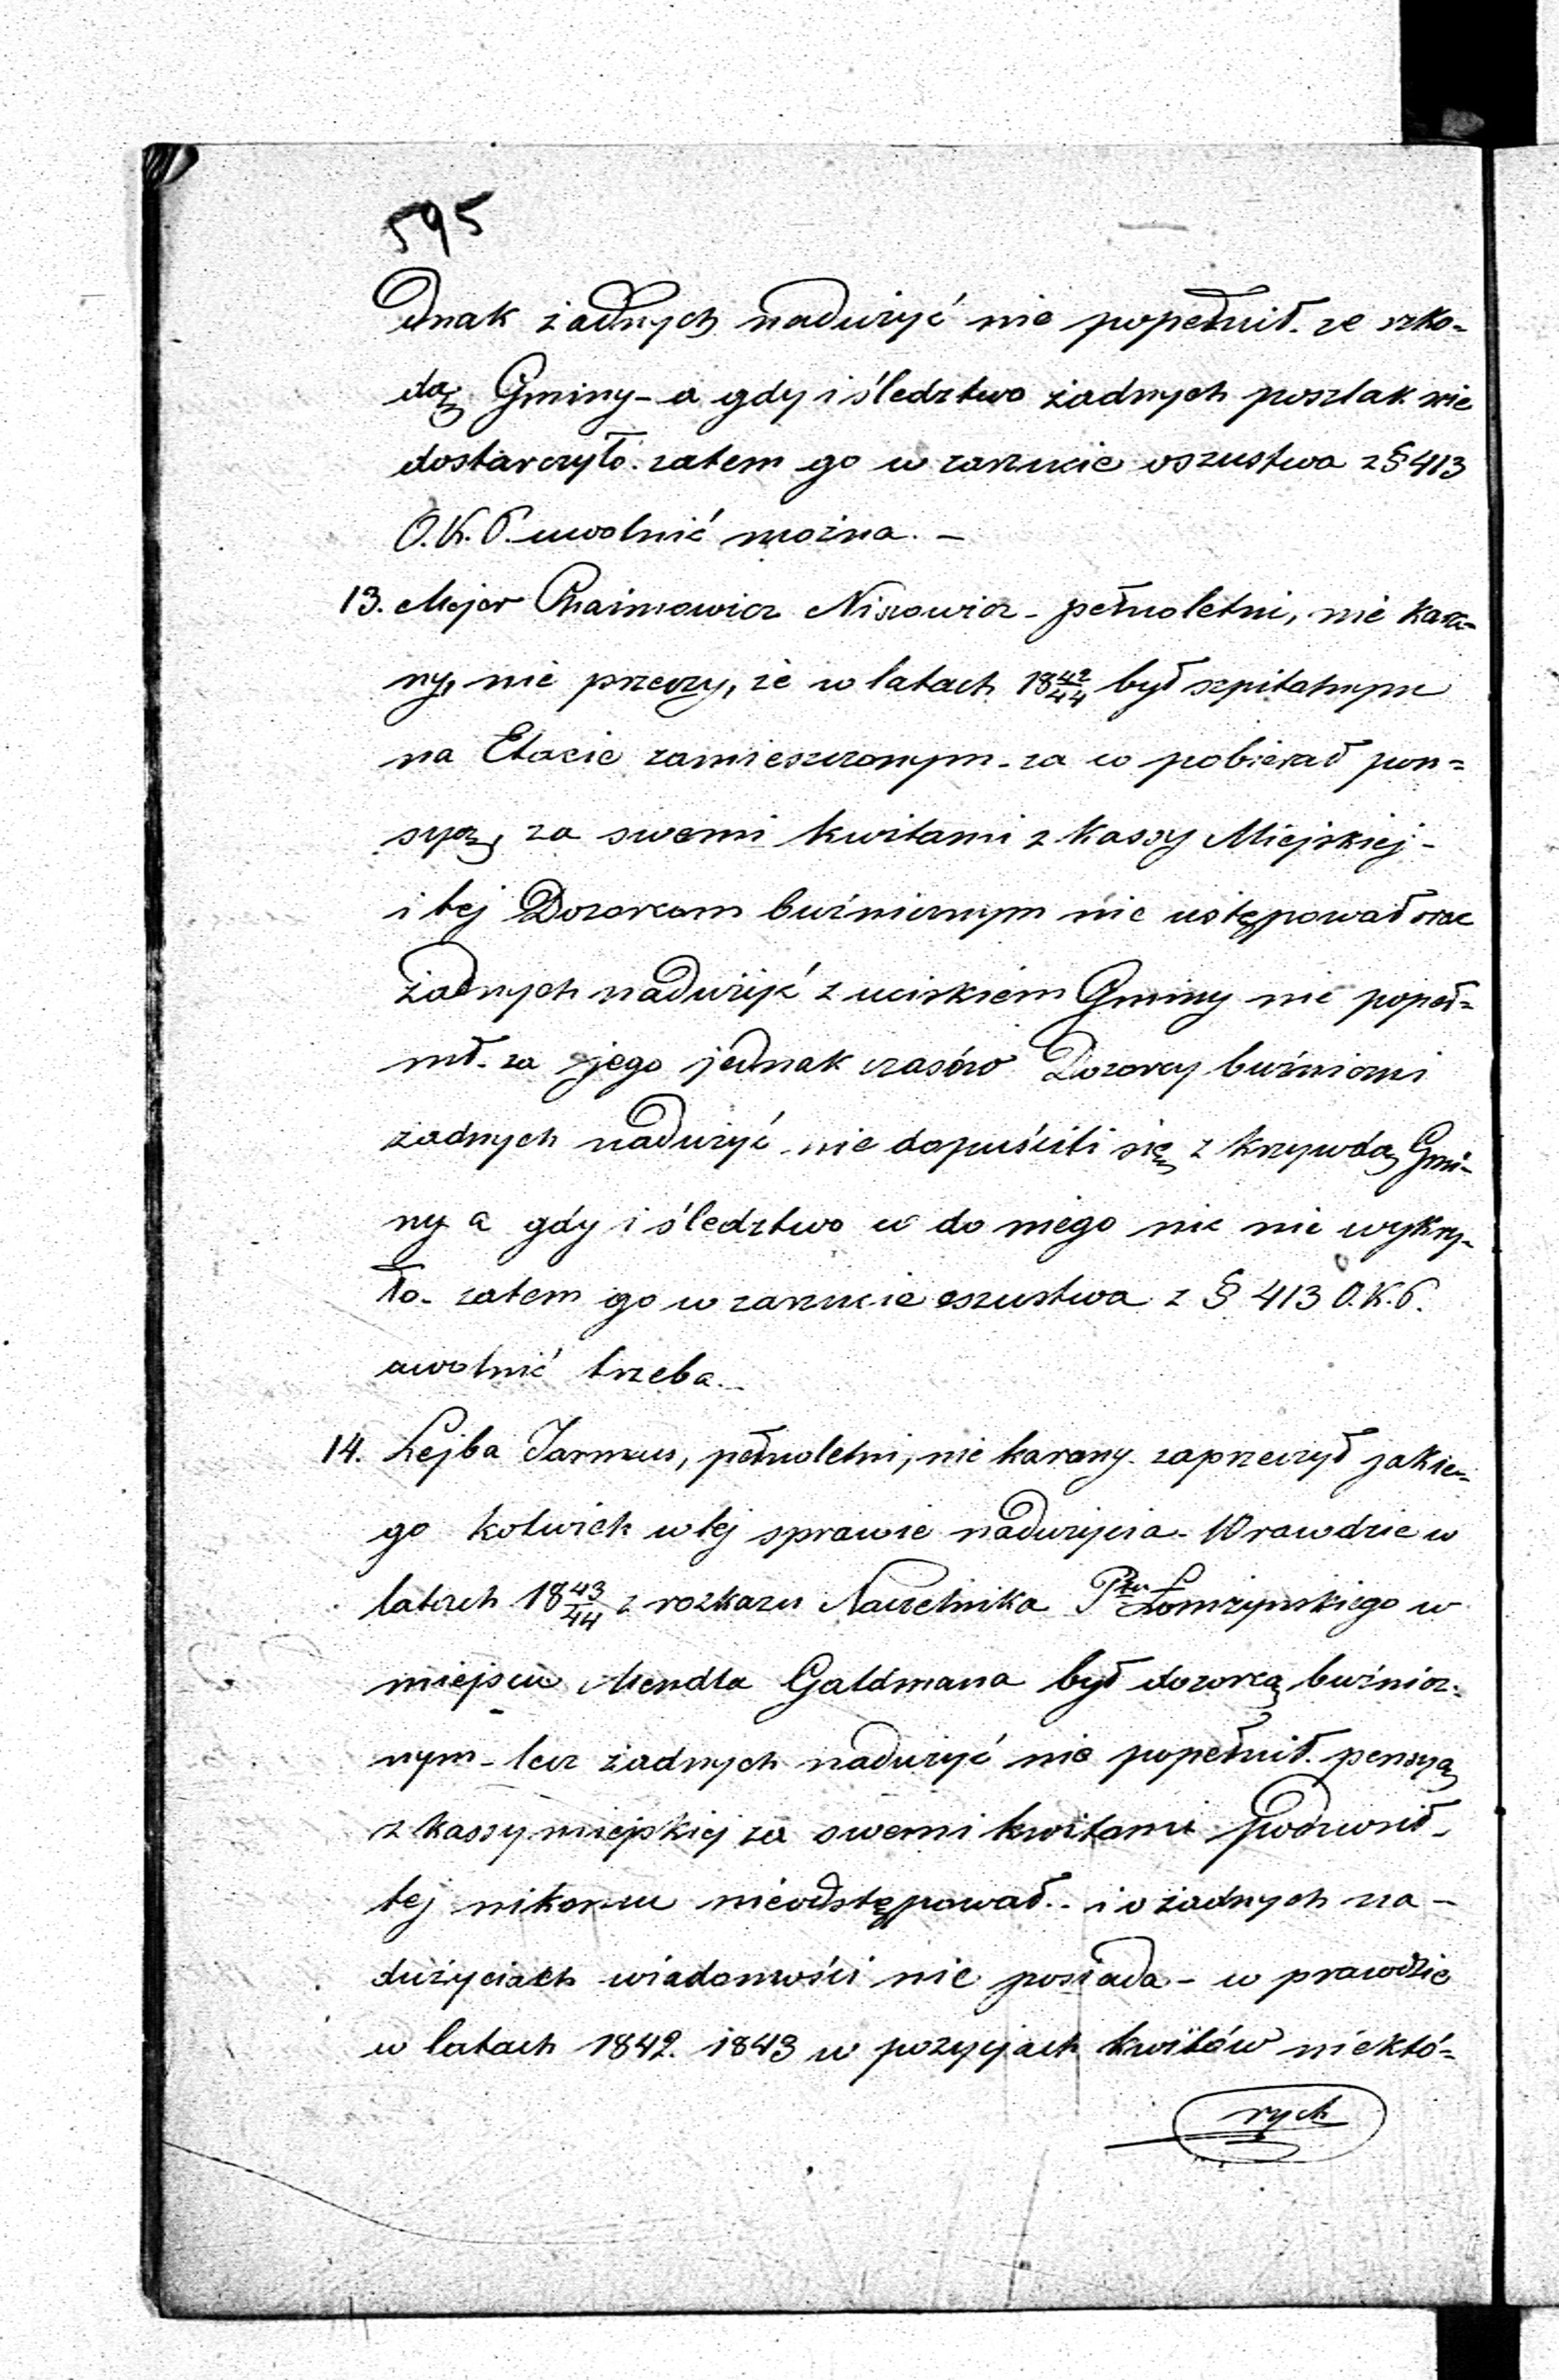 595
dnak żadnych nadużyć nie popełnił. ze szko=
dą Gminy - a gdy i śledztwo żadnych poszlak nie
dostarczyło. zatem go w zarzucie oszustwa z § 413
O.K.P. uwolnić można. -
13. Mejer Chaimowicz Niszowicz - pełnoletni, nie kara=
ny, nie przeczy, że w latach 18 42/44 był szpitalnym
na Etacie zamieszczonym - za co pobierał pen=
syą, za swemi kwitami z Kassy Miejskiej -
i tej Dozorcom bużnicznym nie ustępował oraz
żadnych nadużyć z uciskiem Gminy nie popeł=
nił. za jego jednak czasów Dozorcy bużniczni
żadnych nadużyć nie dopuścili się z krzywdą Gmi-
ny a gdy i śledztwo co do niego nic nie wykry-
ło - zatem go w zarzucie oszustwa z § 413 O.K.P.
uwolnić trzeba. -
14. Lejba Jarmus, pełnoletni, nie karany. zaprzeczył jakie-
go kolwiek w tej sprawie nadużycia - Wprawdzie w
latach 18 43/44 z rozkazu Naczelnika Ptu Łomżyńskiego w
miejscu Mendla Goldmana był dozorcą bużnicz=
nym - lecz żadnych nadużyć nie popełnił. pensyą
z kassy miejskiej za swemi kwitami podnosił -
tej nikomu nieodstępował. - i o żadnych na -
dużyciach wiadomości nie posiada - w prawdzie
w latach 1842. 1843 w pozycjach kwitów niektó=
rych